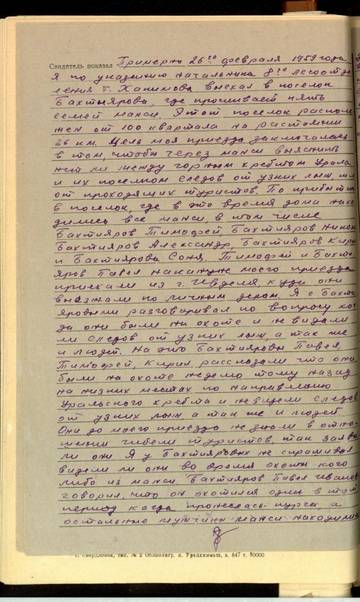 Свидетель показал Примерно 26го февраля 1959 года
я по указанию начальника 8го лесоотде
ления т. Хакимова выехал в поселок
Бахтыярова, где проживает пять
семей манси. Этот поселок располо
жен от 100 квартала на расстоянии
26 км. Цель моя приезда заключалась
в том, чтобы через манси выяснить
нет ли между горным хребтом Урала
и их поселком следов от узких лыж
от проходящих туристов. По прибытии
в поселок, где в это время дома нахо
дились все манси, в том числе
Бахтияров Тимофей Бахтияров Никита
Бахтияров Александр, Бахтияров Кирил
и Бахтиярова Соня, Тимофей и Бахти
яров Павел накануне моего приезда
приехали из г. Ивделя, куда они
выезжали по личным делам. Я с Бахти
яровыми разговаривал по вопросу ког
да они были на охоте и не видели
ли следов от узких лыж а так же
и людей. На это Бахтияровы Павел,
Тимофей, Кирил рассказали что они
были на охоте неделю тому назад
на жизни местах по направлению
Уральского хребта и не видели следов
от узких лыж а так же и людей
Они до моего приезда не знали в отно
шении гибели туристов, так заяви
ли они. Я у Бахтияровых не спрашивал
видели ли они во время охоты кого
либо из манси. Бахтияров Павел
говорил, что он охотился один в тот
период когда пронеслась пурга а
остальные мужчины манси находились
г. Свердловск, тип. № 2 Облполигр. п. Уралхиммаш, з. 847 т. 50000